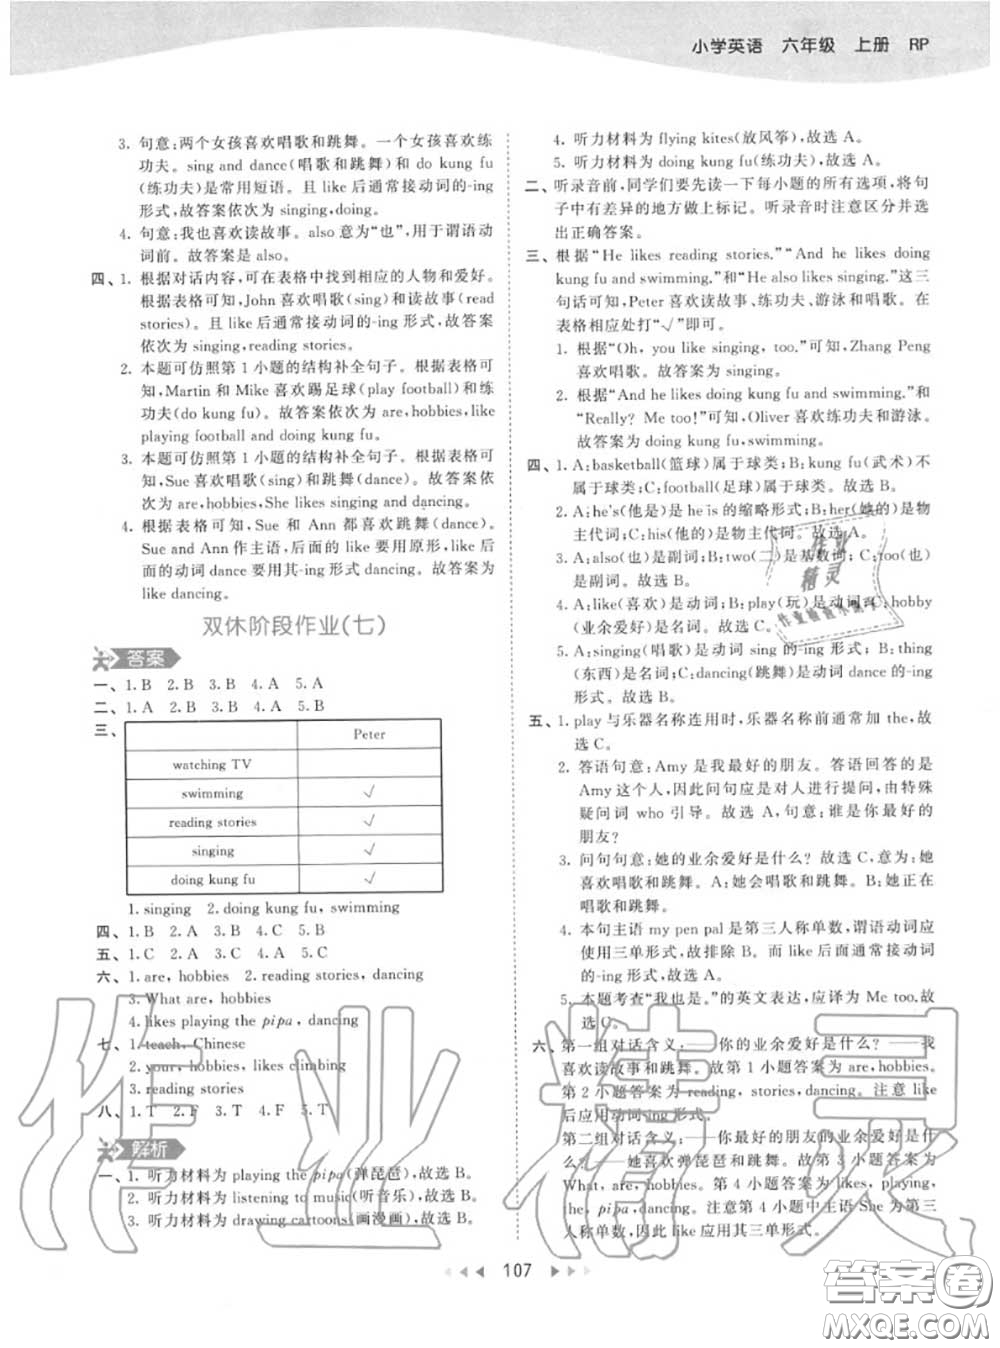 小学英语 六年级 上册 RP
3. 句意:两个女孩喜欢唱歌和跳舞。一个女孩喜欢练
功夫。sing and dance(唱歌和跳舞)和 do kung fu
(练功夫)是常用短语。且 like 后通常接动词的-ing
形式,故答案依次为 singing,doing。
4. 句意:我也喜欢读故事。also 意为“也”,用于谓语动
词前。故答案是 also。
四、1. 根据对话内容,可在表格中找到相应的人物和爱好。
根据表格可知,John 喜欢唱歌(sing)和读故事(read
stories)。且 like 后通常接动词的-ing 形式,故答案
依次为 singing,reading stories。
2. 本题可仿照第 1 小题的结构补全句子。根据表格可
知,Martin 和 Mike 喜欢踢足球(play football)和练
功夫(do kung fu)。故答案依次为 are,hobbies,like
playing football and doing kung fu。
3. 本题可仿照第 1 小题的结构补全句子。根据表格可
知,Sue 喜欢唱歌(sing)和跳舞(dance)。故答案依
次为 are,hobbies,She likes singing and dancing。
4. 根据表格可知,Sue 和 Ann 都喜欢跳舞(dance)。
Sue and Ann 作主语,后面的 like 要用原形,like 后
面的动词 dance 要用其-ing 形式 dancing。故答案为
like dancing。
双休阶段作业(七)
答案
一、1. B 2. B 3. B 4. A 5. A
二、1. A 2. B 3. B 4. A 5. B
三、
Peter
watching TV
swimming √
reading stories √
singing √
doing kung fu √
1. singing 2. doing kung fu, swimming
四、1. B 2. A 3. B 4. C 5. B
五、1. C 2. A 3. C 4. A 5. C
六、1. are, hobbies 2. reading stories, dancing
3. What are, hobbies
4. likes playing the pipa, dancing
七、1. teach, Chinese
2. your, hobbies, likes climbing
3. reading stories
八、1. T 2. F 3. T 4. F 5. T
解析
一、1. 听力材料为 playing the pipa(弹琵琶),故选 B。
2. 听力材料为 listening to music(听音乐),故选 B。
3. 听力材料为 drawing cartoons(画漫画),故选 B。
4. 听力材料为 flying kites(放风筝),故选 A。
5. 听力材料为 doing kung fu(练功夫),故选 A。
二、听录音前,同学们要先读一下每小题的所有选项,将句
子中有差异的地方做上标记。听录音时注意区分并选
出正确答案。
三、根据“He likes reading stories.”“And he likes doing
kung fu and swimming.”和“He also likes singing.”这三
句话可知,Peter 喜欢读故事、练功夫、游泳和唱歌。在
表格相应处打“√”即可。
1. 根据“Oh, you like singing, too.”可知,Zhang Peng
喜欢唱歌。故答案为 singing。
2. 根据“And he likes doing kung fu and swimming.”和
“Really? Me too!”可知,Oliver 喜欢练功夫和游泳。
故答案为 doing kung fu,swimming。
四、1. A:basketball(篮球)属于球类;B:kung fu(武术)不
属于球类;C:football(足球)属于球类。故选 B。
2. A:he's(他是)是 he is 的缩略形式;B:her(她的)是物
主代词;C:his(他的)是物主代词。故选 A。
3. A:also(也)是副词;B:two(二)是基数词;C:too(也)
是副词。故选 B。
4. A:like(喜欢)是动词;B:play(玩)是动词;C:hobby
(业余爱好)是名词。故选 C。
5. A:singing(唱歌)是动词 sing 的-ing 形式;B:thing
(东西)是名词;C:dancing(跳舞)是动词 dance 的-ing
形式。故选 B。
五、1. play 与乐器名称连用时,乐器名称前通常加 the,故
选 C。
2. 答语句意:Amy 是我最好的朋友。答语回答的是
Amy 这个人,因此问句应是对人进行提问,由特殊
疑问词 who 引导。故选 A,句意:谁是你最好的
朋友?
3. 问句句意:她的业余爱好是什么?故选 C,意为:她
喜欢唱歌和跳舞。A:她会唱歌和跳舞。B:她正在
唱歌和跳舞。
4. 本句主语 my pen pal 是第三人称单数,谓语动词应
使用三单形式,故排除 B。而 like 后面通常接动词
的-ing 形式,故选 A。
5. 本题考查“我也是。”的英文表达,应译为 Me too.故
选 C。
六、第一组对话含义:——你的业余爱好是什么?——我
喜欢读故事和跳舞。故第 1 小题答案为 are,hobbies。
第 2 小题答案为 reading, stories, dancing。注意 like
后应用动词-ing 形式。
第二组对话含义:——你最好的朋友的业余爱好是什
么?——她喜欢弹琵琶和跳舞。故第 3 小题答案为
What, are, hobbies。第 4 小题答案为 likes, playing,
the, pipa, dancing。注意第 4 小题中主语 She 为第三
人称单数,故 like 应用其三单形式。
107
作业精灵
作业精灵
答案圈
MXQE.COM